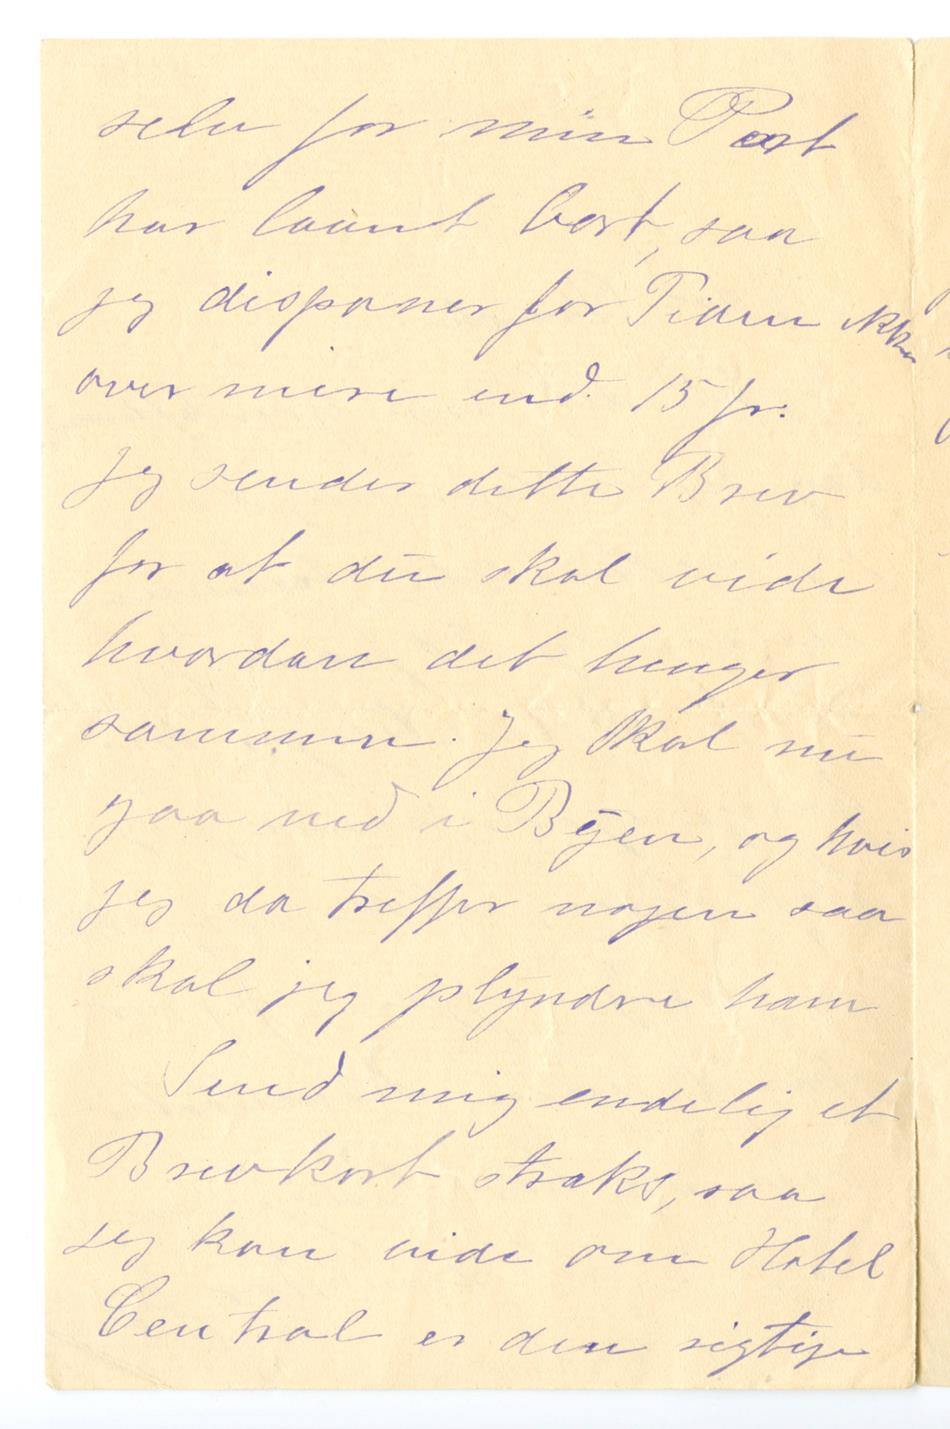 selv for min Part
har laant bort, saa
jeg disponer for Tiden ikke
over mere end. 15 fr.
jeg sender dette Brev
for at du skal vide
hvordan det henger
sammen. Jeg skal nu
gaa ned i Byen, og hvis
jeg da treffer nogen saa
skal jeg plyndre ham
Send mig endelig et
Brevkort straks, saa
jeg kan vide om Hotel
Central er den rigtige